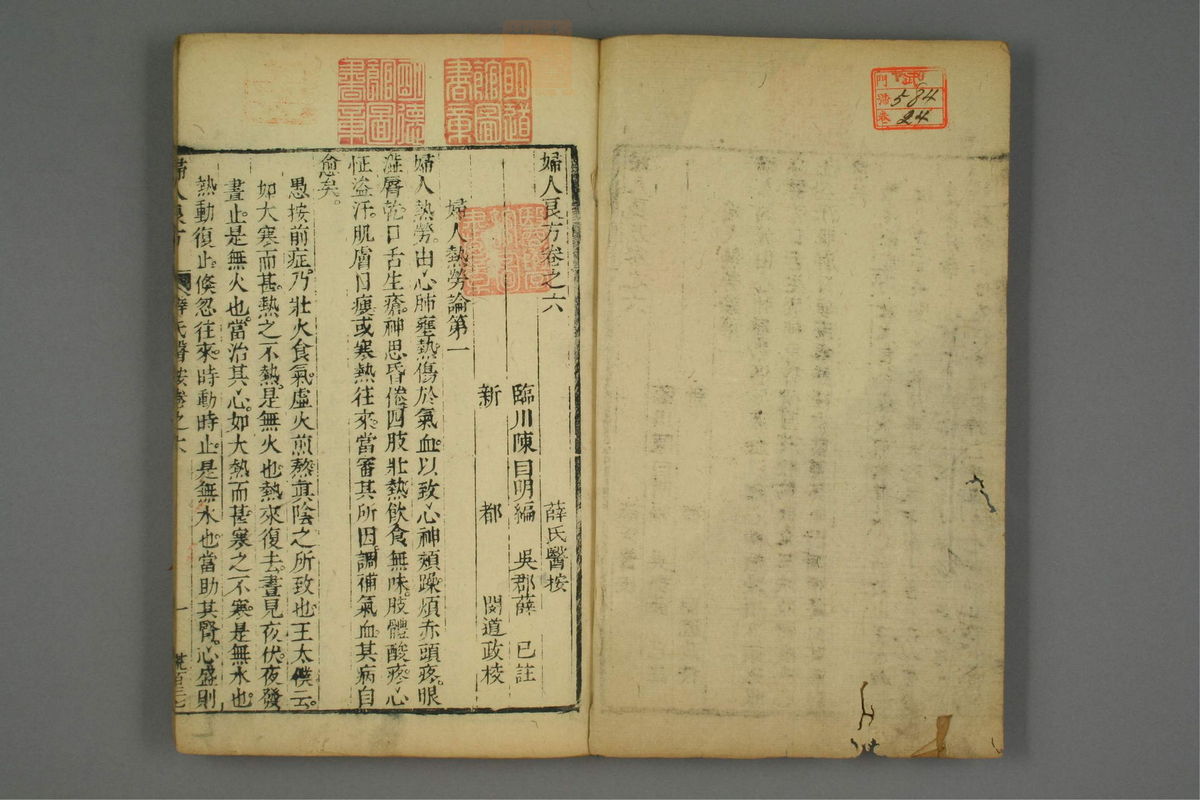 婦人良方卷之六 薛氏醫按
臨川陳自明編 吳郡薛 已註
新 都 閔道政梓
婦人熱勞論第一
婦人熱勞。由心肺壅熱。傷於氣血。以致心神煩躁。頰赤頭疼。眼
澁脣乾。口舌生瘡。神思昏倦。四肢壯熱。飲食無味。肢體酸疼。心
怔盗汗。肌膚日瘦。或寒熱往來。當審其所因。調補氣血。其病自
愈矣。
愚按前症。乃壯火食氣。虛火煎熬真陰之所致也。王太僕云。
如大寒而甚。熱之不熱。是無火也。熱來復去。晝見夜伏。夜發
晝止。是無火也。當治其心。如大熱而甚。寒之不寒。是無水也。
熱動復止。倏忽往來。時動時止。是無水也。當助其腎。心盛則
婦人良方 薛氏醫按卷之六 一
明道館圖書章
明德館圖書章
門
號 584
卷 24